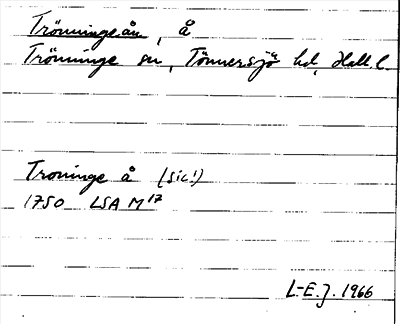 Trönningeån, å
Trönninge sn, Tönnersjö hd, Hall. l.
Troninge å (sic!)
1750 LSA M17
L-E.J. 1966